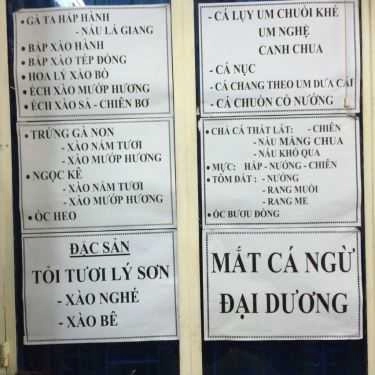 • GÀ TA HẤP HÀNH
- NẤU LÁ GIANG
• BẮP XÀO HÀNH
• BẮP XÀO TÉP ĐỒNG
• HOA LÝ XÀO BÒ
• ẾCH XÀO MƯỚP HƯƠNG
• ẾCH XÀO SẢ - CHIÊN BƠ
• TRỨNG GÀ NON
- XÀO NẤM TƯƠI
- XÀO MƯỚP HƯƠNG
• NGỌC KÊ
- XÀO NẤM TƯƠI
- XÀO MƯỚP HƯƠNG
• ÓC HEO
ĐẶC SẢN
TỎI TƯƠI LÝ SƠN
- XÀO NGHÉ
- XÀO BÊ
- CÁ LỤY UM CHUỐI KHẾ
UM NGHỆ
CANH CHUA
- CÁ NỤC
- CÁ CHANG THEO UM DƯA CẢI
- CÁ CHUỒN CỒ NƯỚNG
• CHẢ CÁ THÁT LÁT: - CHIÊN
- NẤU MĂNG CHUA
- NẤU KHỔ QUA
• MỰC: HẤP - NƯỚNG - CHIÊN
• TÔM ĐẤT: - NƯỚNG
- RANG MUỐI
- RANG ME
• ỐC BƯƠU ĐỒNG
MẮT CÁ NGỪ
ĐẠI DƯƠNG